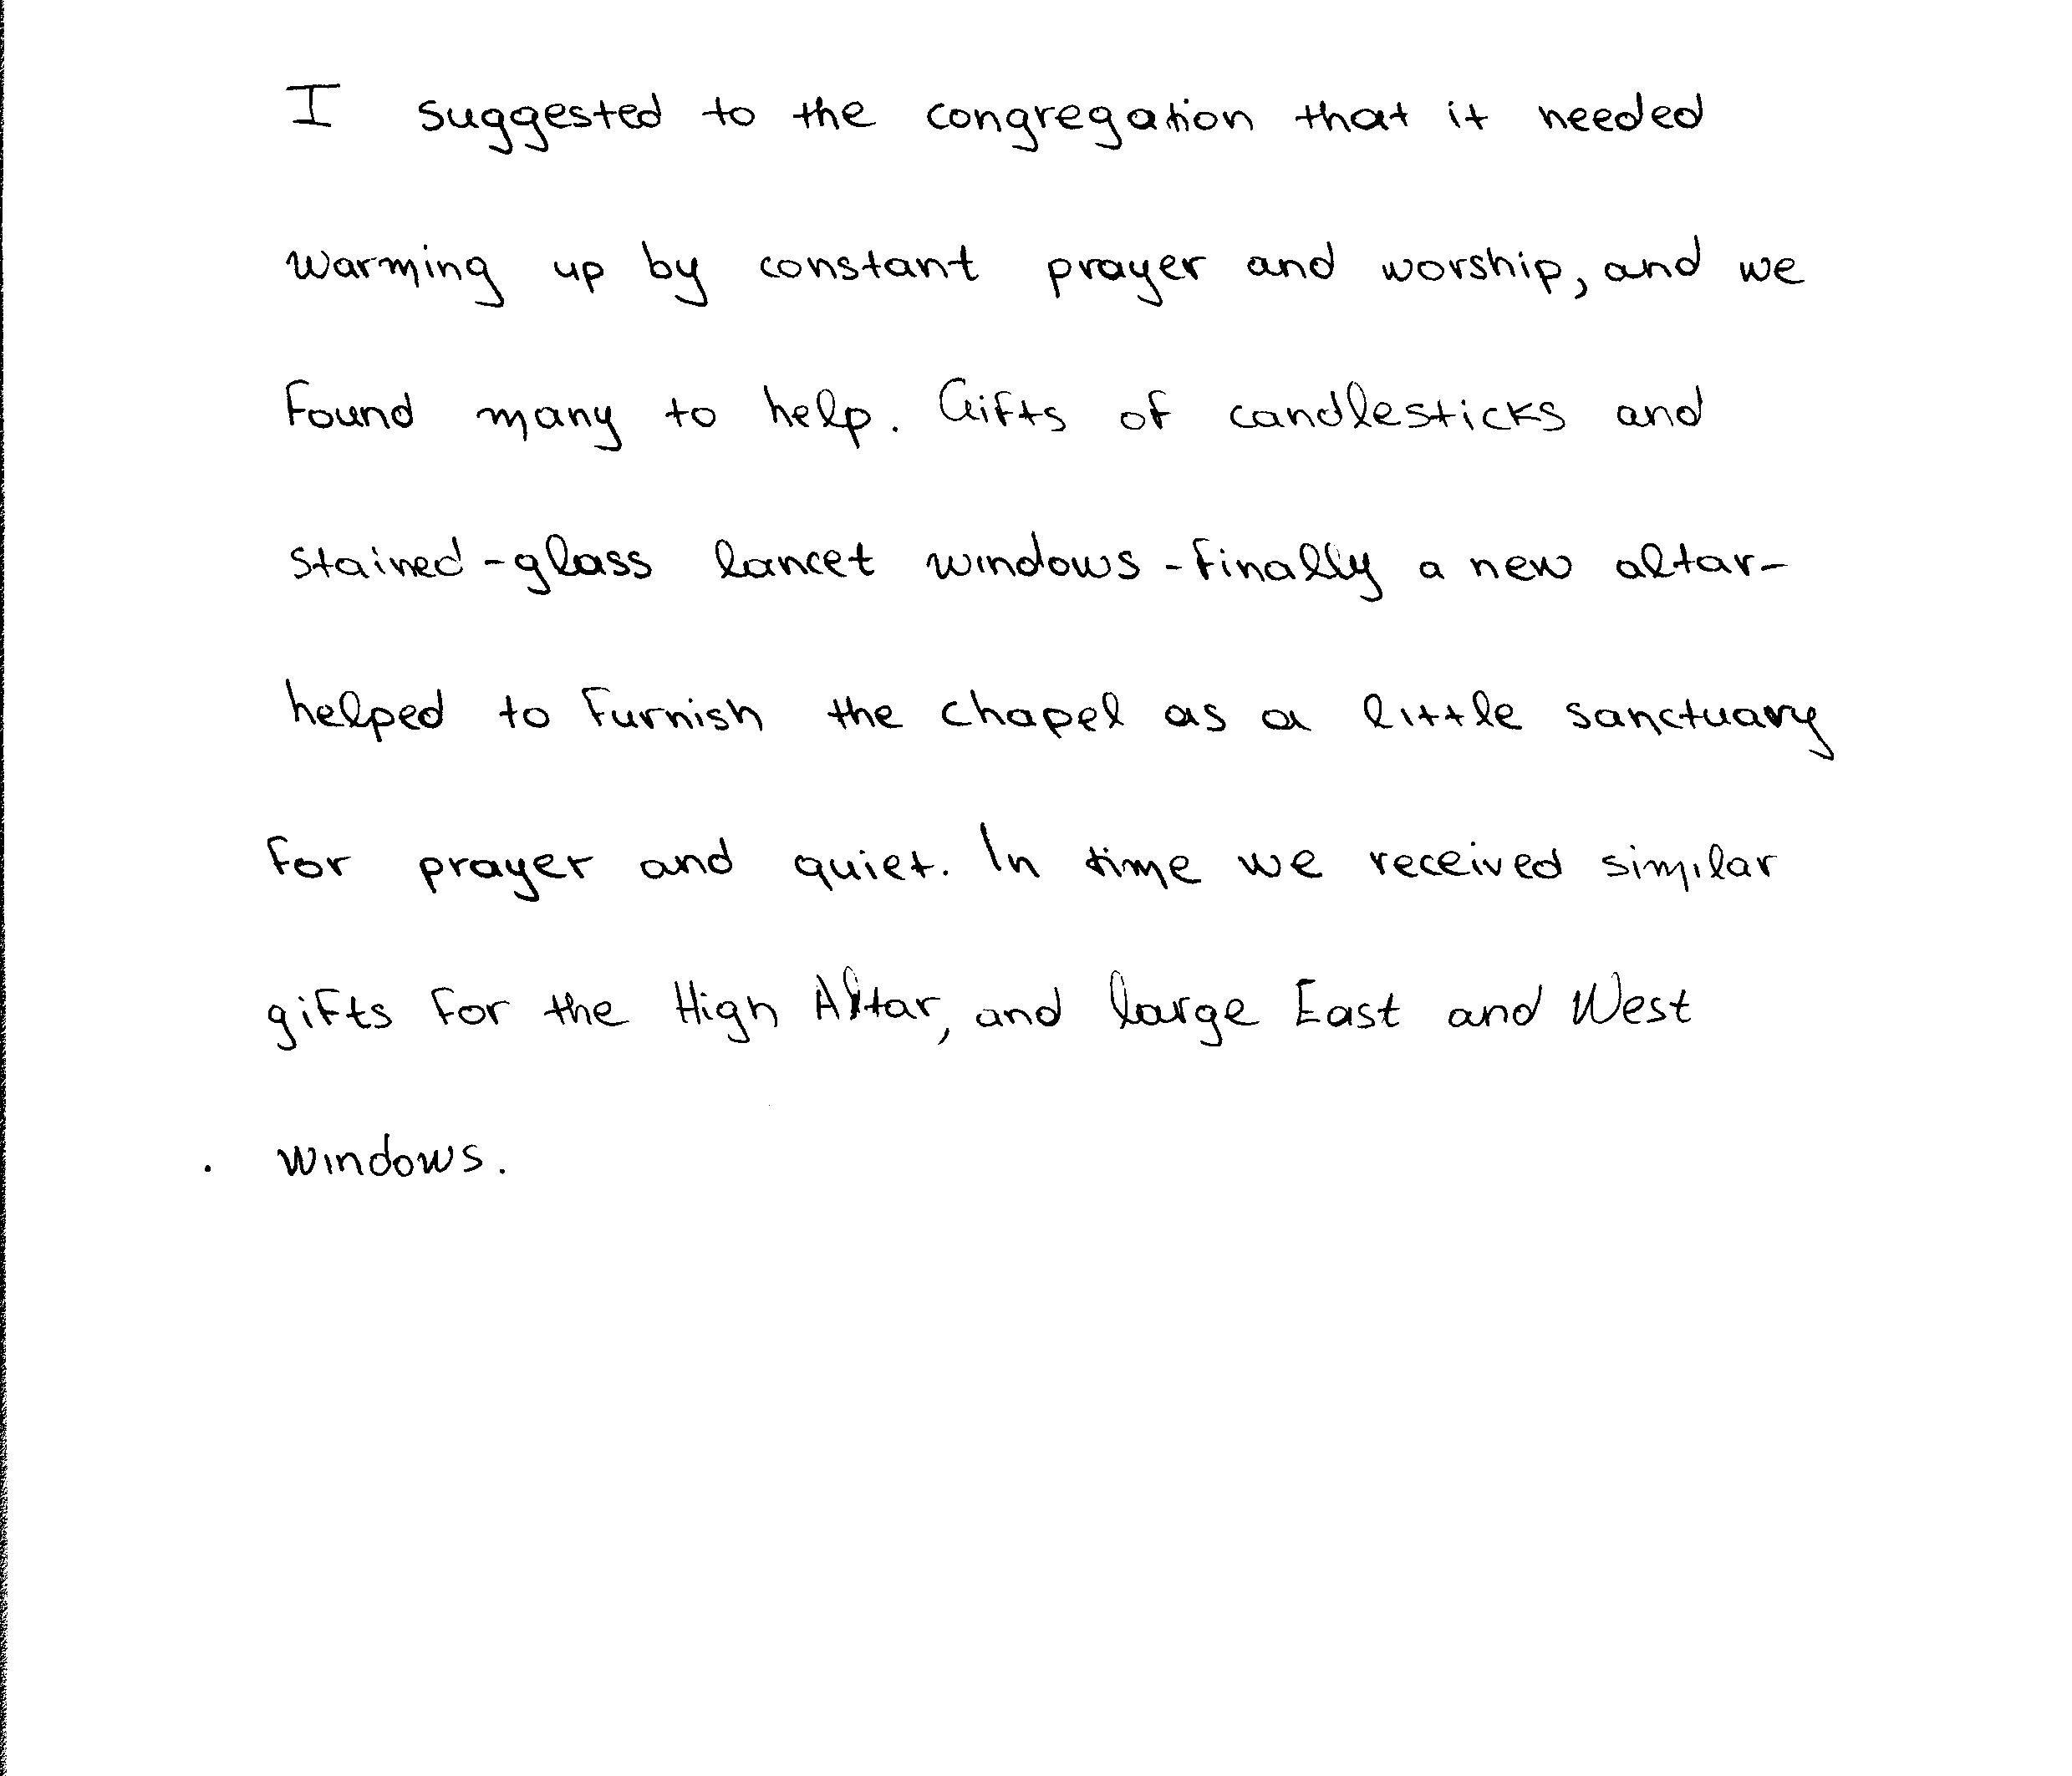 I suggested to the congregation that it needed
warming up by constant prayer and worship, and we
found many to help. Gifts of candlesticks and
stained-glass lancet windows - finally a new altar -
helped to furnish the chapel as a little sanctuary
for prayer and quiet. In time we received similar
gifts for the High Altar, and large East and West
windows.